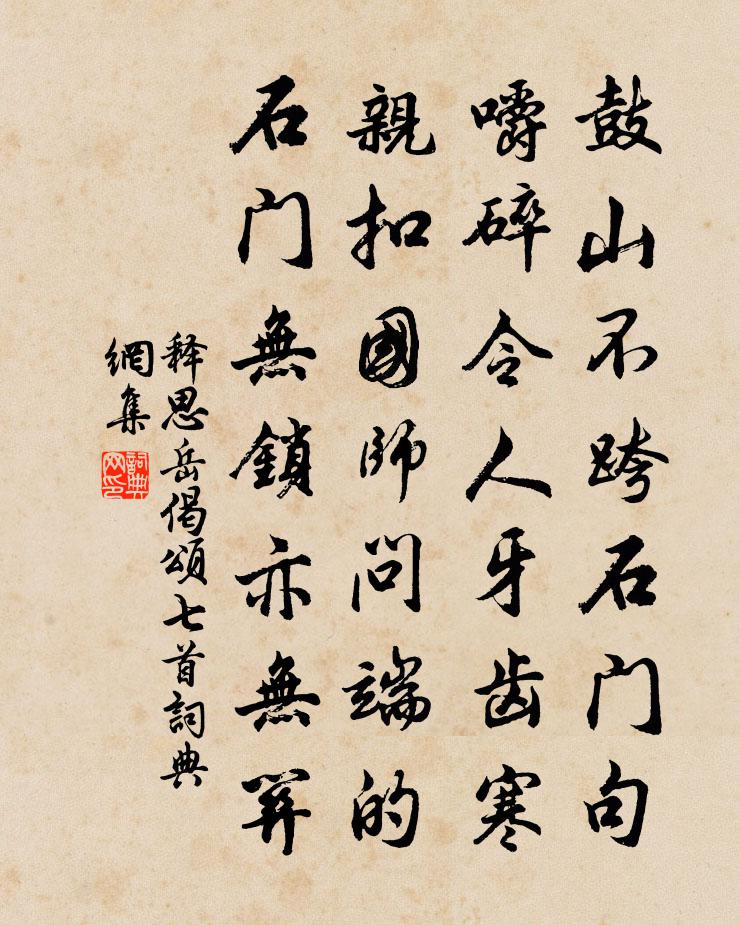 鼓山不跨石门句
嚼碎令人牙齿寒
親扣國師问端的
石门無鎖亦無関
释思岳偈頌七首詞典
網集
詞典
网印